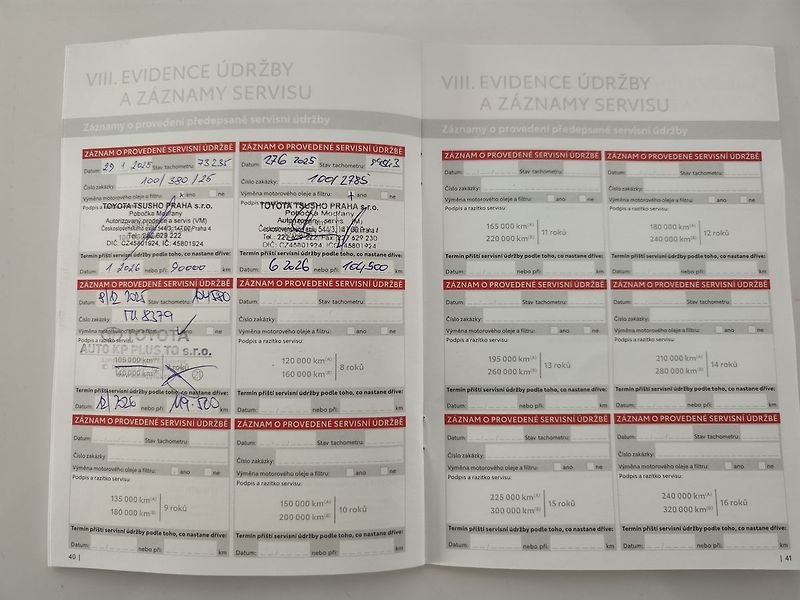 VIII. EVIDENCE ÚDRŽBY
A ZÁZNAMY SERVISU
Záznamy o provedení předepsané servisní údržby
ZÁZNAM O PROVEDENÉ SERVISNÍ ÚDRŽBĚ
Datum: 29 1 2025 Stav tachometru: 73235
Číslo zakázky: 100/380/25
Výměna motorového oleje a filtru: ano ne
TOYOTA TSUSHO PRAHA s.r.o.
Pobočka Modřany
Autorizovaný prodejce a servis (VM)
Československého exilu 544/3, 147 00 Praha 4
DIČ: CZ45801924, IČ: 45801924
Termín příští servisní údržby podle toho, co nastane dříve:
Datum: 1 2026 nebo při: 90000 km
ZÁZNAM O PROVEDENÉ SERVISNÍ ÚDRŽBĚ
Datum: 27 6 2025 Stav tachometru:
Číslo zakázky: 100/2785
Výměna motorového oleje a filtru: ano ne
Podpis a razítko servisu:
TOYOTA TSUSHO PRAHA s.r.o.
Pobočka Modřany
DIČ: CZ45801924, IČ: 45801924
Termín příští servisní údržby podle toho, co nastane dříve:
Datum: 6 2026 nebo při: 104500 km
ZÁZNAM O PROVEDENÉ SERVISNÍ ÚDRŽBĚ
Datum: 8/12 2025 Stav tachometru:
Číslo zakázky: 8379
Podpis a razítko servisu:
TOYOTA
AUTO KP PLUS TO s.r.o.
105 000 km(A)
140 000 km(B)
Termín příští servisní údržby podle toho, co nastane dříve:
Datum: 12/2026 nebo při: 119.500 km
ZÁZNAM O PROVEDENÉ SERVISNÍ ÚDRŽBĚ
Datum: Stav tachometru:
Číslo zakázky:
Výměna motorového oleje a filtru: ano ne
Podpis a razítko servisu:
120 000 km(A)
160 000 km(B) 8 roků
Termín příští servisní údržby podle toho, co nastane dříve:
Datum: nebo při: km
ZÁZNAM O PROVEDENÉ SERVISNÍ ÚDRŽBĚ
Datum: Stav tachometru:
Číslo zakázky:
Výměna motorového oleje a filtru: ano ne
Podpis a razítko servisu:
135 000 km(A)
180 000 km(B) 9 roků
Termín příští servisní údržby podle toho, co nastane dříve:
Datum: nebo při: km
ZÁZNAM O PROVEDENÉ SERVISNÍ ÚDRŽBĚ
Datum: Stav tachometru:
Číslo zakázky:
Výměna motorového oleje a filtru: ano ne
Podpis a razítko servisu:
150 000 km(A)
200 000 km(B) 10 roků
Termín příští servisní údržby podle toho, co nastane dříve:
Datum: nebo při: km
40 |
VIII. EVIDENCE ÚDRŽBY
A ZÁZNAMY SERVISU
Záznamy o provedení předepsané servisní údržby
ZÁZNAM O PROVEDENÉ SERVISNÍ ÚDRŽBĚ
Datum: Stav tachometru:
Číslo zakázky:
Výměna motorového oleje a filtru: ano ne
Podpis a razítko servisu:
165 000 km(A)
220 000 km(B) 11 roků
Termín příští servisní údržby podle toho, co nastane dříve:
Datum: nebo při: km
ZÁZNAM O PROVEDENÉ SERVISNÍ ÚDRŽBĚ
Datum: Stav tachometru:
Číslo zakázky:
Výměna motorového oleje a filtru: ano ne
Podpis a razítko servisu:
180 000 km(A)
240 000 km(B) 12 roků
Termín příští servisní údržby podle toho, co nastane dříve:
Datum: nebo při: km
ZÁZNAM O PROVEDENÉ SERVISNÍ ÚDRŽBĚ
Datum: Stav tachometru:
Číslo zakázky:
Výměna motorového oleje a filtru: ano ne
Podpis a razítko servisu:
195 000 km(A)
260 000 km(B) 13 roků
Termín příští servisní údržby podle toho, co nastane dříve:
Datum: nebo při: km
ZÁZNAM O PROVEDENÉ SERVISNÍ ÚDRŽBĚ
Datum: Stav tachometru:
Číslo zakázky:
Výměna motorového oleje a filtru: ano ne
Podpis a razítko servisu:
210 000 km(A)
280 000 km(B) 14 roků
Termín příští servisní údržby podle toho, co nastane dříve:
Datum: nebo při: km
ZÁZNAM O PROVEDENÉ SERVISNÍ ÚDRŽBĚ
Datum: Stav tachometru:
Číslo zakázky:
Výměna motorového oleje a filtru: ano ne
Podpis a razítko servisu:
225 000 km(A)
300 000 km(B) 15 roků
Termín příští servisní údržby podle toho, co nastane dříve:
Datum: nebo při: km
ZÁZNAM O PROVEDENÉ SERVISNÍ ÚDRŽBĚ
Datum: Stav tachometru:
Číslo zakázky:
Výměna motorového oleje a filtru: ano ne
Podpis a razítko servisu:
240 000 km(A)
320 000 km(B) 16 roků
Termín příští servisní údržby podle toho, co nastane dříve:
Datum: nebo při: km
| 41